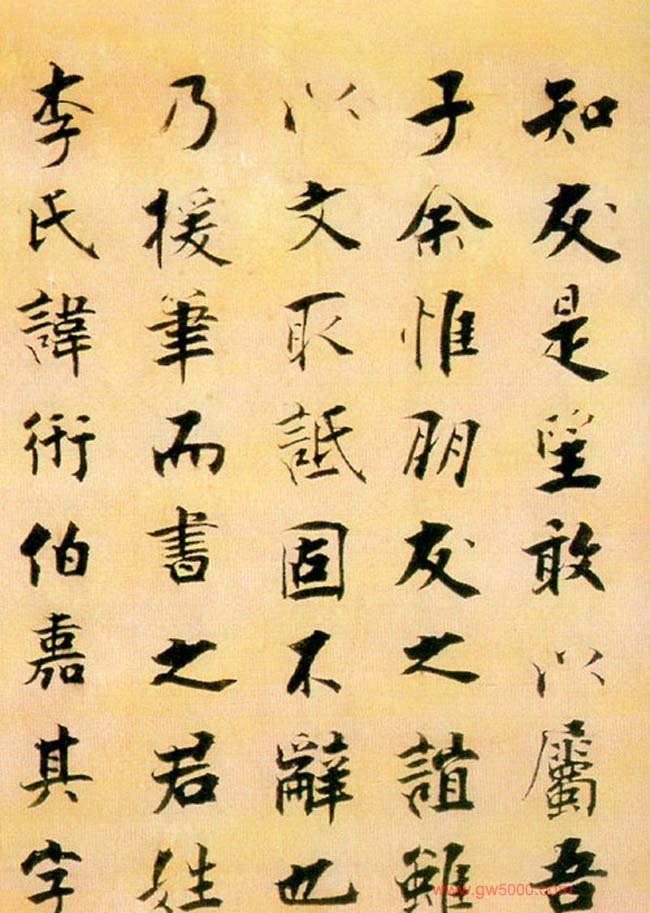 知友是望敢以屬吾
子余惟朋友之誼雖
以文取詆固不辭也
乃援筆而書之君姓
李氏諱術伯嘉其字
www.gw5000.com